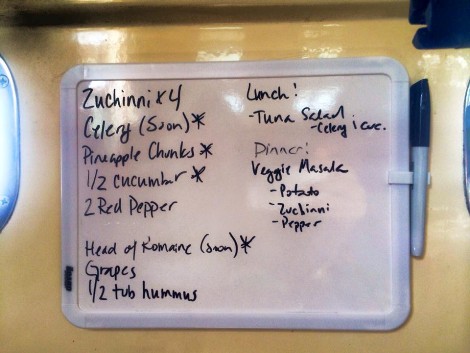 Zuchinni x 4
Celery (Soon)*
Pineapple Chunks *
1/2 cucumber *
2 Red Pepper
Head of Romaine (soon)*
Grapes
1/2 tub hummus
Lunch!
-Tuna Salad
-Celery
Dinner!
Veggie Masala
-Potato
-Zuchinni
-Pepper